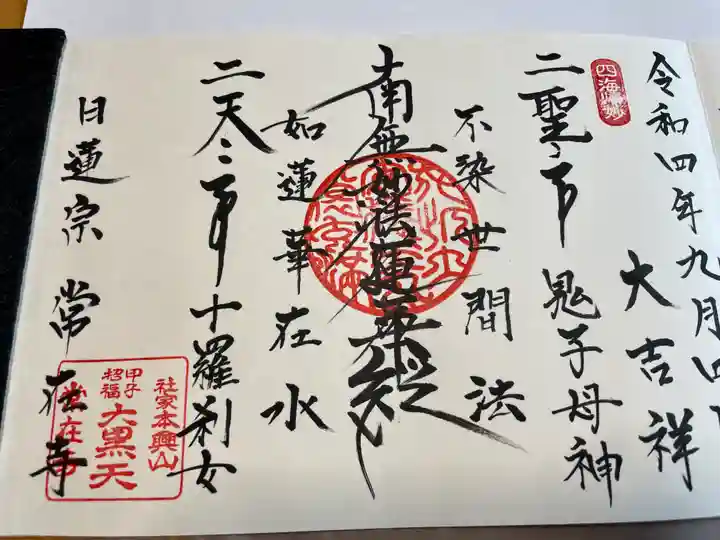 令和四年九月四日
大吉祥
四海帰妙
二聖二天 鬼子母神
不染世間法
南無妙法蓮華経
如蓮華在水
二天二 十羅刹女
日蓮宗 常在寺
社家本興山
大黒天
甲子
招福
常在寺